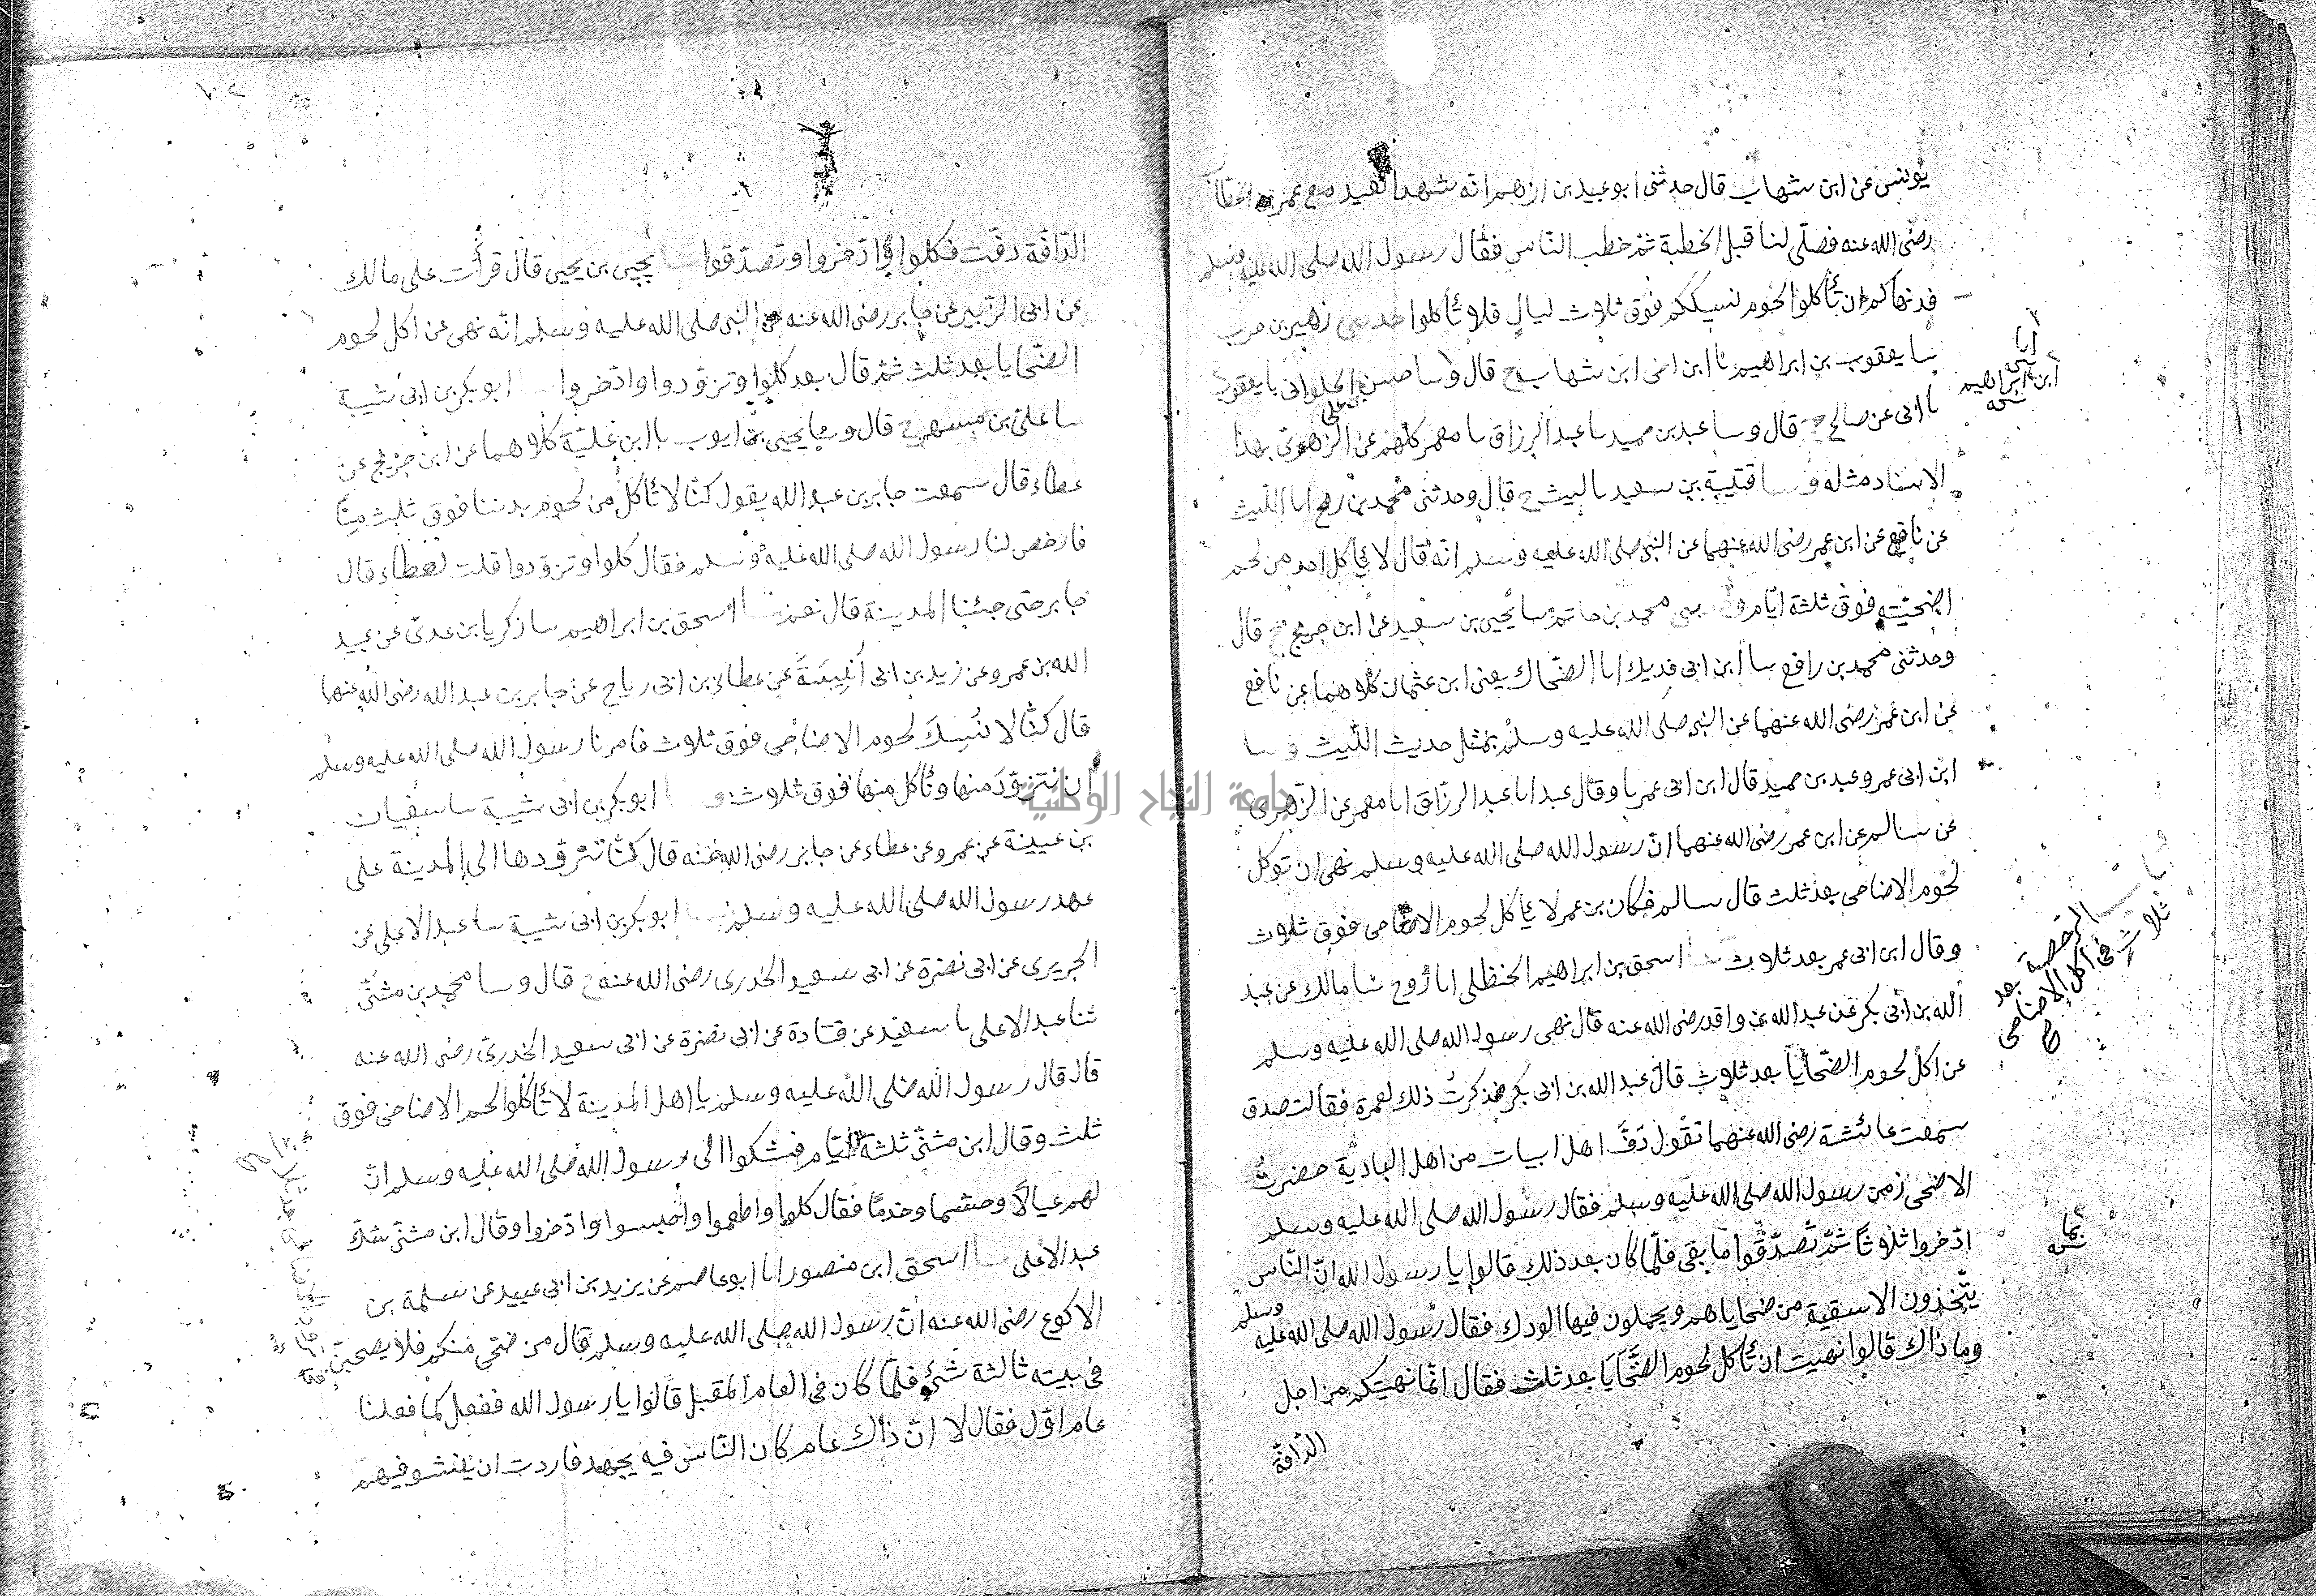 يونس عن ابن شهاب قال حدثنى ابو عبيد بن ازهر انه شهد العيد مع عمر بن الخطاب
رضى الله عنه فصلى لنا قبل الخطبة ثم خطب الناس فقال رسول الله صلى الله عليه وسلم
قد نهاكم ان تأكلوا لحوم نسككم فوق ثلاث ليال فلا تأكلوا حدثنى زهير بن حرب
سا يعقوب بن ابراهيم نا ابن اخى ابن شهاب ح قال و سا حسن الحلوانى نا يعقوب
نا ابى عن صالح ح قال و سا عبد بن حميد سا عبد الرزاق سا معمر كلهم عن الزهرى بهذا
الاسناد مثله و سا قتيبة بن سعيد سا ليث ح قال وحدثنى محمد بن رمح انا الليث
عن نافع عن ابن عمر رضى الله عنهما عن النبى صلى الله عليه وسلم انه قال لا يأكل احد من لحم
اضحيته فوق ثلثة ايام محمد بن حاتم سا يحيى بن سعيد عن ابن جريج ح قال
وحدثنى محمد بن رافع سا ابن ابى فديك انا الضحاك يعنى ابن عثمان كلاهما عن نافع
عن ابن عمر رضى الله عنهما عن النبى صلى الله عليه وسلم بمثل حديث الليث و سا
ابن ابى عمر وعبد بن حميد قال ابن ابى عمر نا وقال عبد انا عبد الرزاق انا معمر عن الزهرى
عن سالم عن ابن عمر رضى الله عنهما ان رسول الله صلى الله عليه وسلم نهى ان توكل
لحوم الاضاحى بعد ثلث قال سالم فكان بن عمر لا يأكل لحوم الاضاحى فوق ثلاث
وقال ابن ابى عمر بعد ثلاث سا اسحق بن ابراهيم الحنظلى انا روح نا مالك عن عبد
الله بن ابى بكر عن عبد الله بن واقد رضى الله عنه قال نهى رسول الله صلى الله عليه وسلم
عن اكل لحوم الضحايا بعد ثلاث قال عبد الله بن ابى بكر فذكرت ذلك لعمرة فقالت صدق
سمعت عائشة رضى الله عنهما تقول دف اهل ابيات من اهل البادية حضرت
الاضحى زمن رسول الله صلى الله عليه وسلم فقال رسول الله صلى الله عليه وسلم
ادخروا ثلاثا ثم تصدقوا ما بقى فلما كان بعد ذلك قالوا يا رسول الله ان الناس
يتخذون الاسقية من ضحاياهم ويحملون فيها الودك فقال رسول الله صلى الله عليه وسلم
وما ذاك قالوا نهيت ان تأكل لحوم الضحايا بعد ثلث فقال انما نهيتكم من اجل
الدافة
ابن ابراهيم
الرخصة بعد
ثلاث فى اكل الاضاحى
الدافة دفت فكلوا وادخروا وتصدقوا سا يحيى بن يحيى قال قرأت على مالك
عن ابى الزبير عن جابر رضى الله عنه عن النبى صلى الله عليه وسلم انه نهى عن اكل لحوم
الضحايا بعد ثلث ثم قال بعد كلوا وتزودوا وادخروا سا ابو بكر بن ابى شيبة
سا على بن مسهر ح قال و سا يحيى بن ايوب نا ابن علية كلاهما عن ابن جريج عن
عطاء قال سمعت جابر بن عبد الله يقول كنا لا نأكل من لحوم بدننا فوق ثلث منا
فارخص لنا رسول الله صلى الله عليه وسلم فقال كلوا وتزودوا قلت لعطاء قال
جابر حتى جئنا المدينة قال نعم سا اسحق بن ابراهيم سا زكريا بن عدى عن عبيد
الله بن عمرو عن زيد بن ابى انيسة عن عطاء بن ابى رباح عن جابر بن عبد الله رضى الله عنهما
قال كنا لا نمسك لحوم الاضاحى فوق ثلاث فامرنا رسول الله صلى الله عليه وسلم
ان نتزود منها ونأكل منها فوق ثلاث و سا ابو بكر بن ابى شيبة سا سفيان
بن عيينة عن عمرو عن عطاء عن جابر رضى الله عنه قال كنا نتزودها الى المدينة على
عهد رسول الله صلى الله عليه وسلم سا ابو بكر بن ابى شيبة سا عبد الاعلى عن
الجريرى عن ابى نضرة عن ابى سعيد الخدرى رضى الله عنه ح قال و سا محمد بن مثنى
ثنا عبد الاعلى نا سعيد عن قتادة عن ابى نضرة عن ابى سعيد الخدرى رضى الله عنه
قال قال رسول الله صلى الله عليه وسلم يا اهل المدينة لا تأكلوا لحم الاضاحى فوق
ثلث وقال ابن مثنى ثلثة ايام فشكوا الى رسول الله صلى الله عليه وسلم ان
لهم عيالا وحشما وخدما فقال كلوا واطعموا واحبسوا وادخروا وقال ابن مثنى شك
عبد الاعلى سا اسحق ابن منصور انا ابو عاصم عن يزيد بن ابى عبيد عن سلمة بن
الاكوع رضى الله عنه ان رسول الله صلى الله عليه وسلم قال من ضحى منكم فلا يصبحن
فى بيته ثالثة شئ فلما كان فى العام المقبل قالوا يا رسول الله نفعل كما فعلنا
عام اول فقال لا ان ذاك عام كان الناس فيه بجهد فاردت ان يفشو فيهم
جامعة النجاح الوطنية